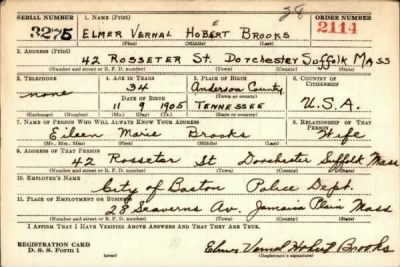 28
SERIAL NUMBER 1. NAME (Print) ORDER NUMBER
3275 ELMER VERNAL HOBERT BROOKS 2114
(First) (Middle) (Last)
2. ADDRESS (Print)
42 ROSSETER ST. DORCHESTER SUFFOLK MASS
(Number and street or R. F. D. number) (Town) (County) (State)
3. TELEPHONE 4. AGE IN YEARS 5. PLACE OF BIRTH 6. COUNTRY OF CITIZENSHIP
none 34 Anderson County U.S.A.
DATE OF BIRTH (Town or county)
11 9 1905 TENNESSEE
(Exchange) (Number) (Mo.) (Day) (Yr.) (State or country)
7. NAME OF PERSON WHO WILL ALWAYS KNOW YOUR ADDRESS 8. RELATIONSHIP OF THAT PERSON
Eileen Marie Brooks Wife
(Mr., Mrs., Miss) (First) (Middle) (Last)
9. ADDRESS OF THAT PERSON
42 Rosseter St Dorchester Suffolk Mass
(Number and street or R. F. D. number) (Town) (County) (State)
10. EMPLOYER'S NAME
City of Boston Police Dept.
11. PLACE OF EMPLOYMENT OR BUSINESS
28 Seaverns Av. Jamaica Plain Mass
(Number and street or R. F. D. number) (Town) (County) (State)
I AFFIRM THAT I HAVE VERIFIED ABOVE ANSWERS AND THAT THEY ARE TRUE.
REGISTRATION CARD
D. S. S. Form 1 Elmer Vernal Hobert Brooks
(Registrant's signature)